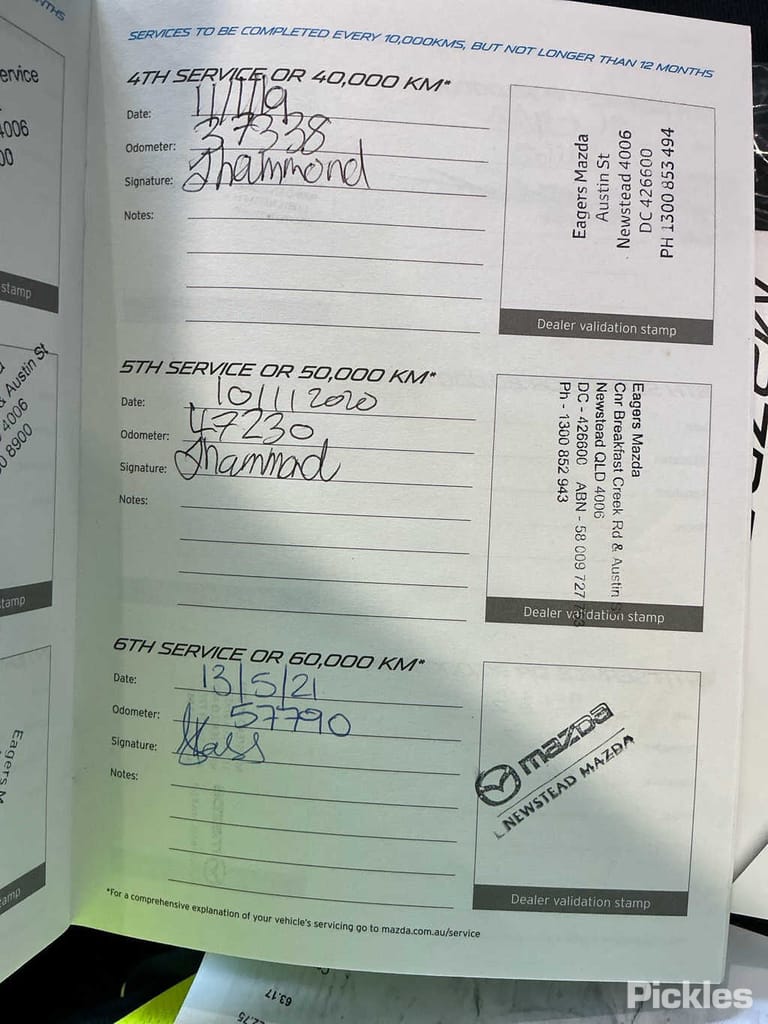 SERVICES TO BE COMPLETED EVERY 10,000KMS, BUT NOT LONGER THAN 12 MONTHS
4TH SERVICE OR 40,000 KM*
Date: 11/1/19
Odometer: 37338
Signature: Jhammond
Notes:
Eagers Mazda
Austin St
Newstead 4006
DC 426600
PH 1300 853 494
Dealer validation stamp
5TH SERVICE OR 50,000 KM*
Date: 10/1/2020
Odometer: 47230
Signature:
Notes:
Eagers Mazda
Cnr Breakfast Creek Rd & Austin
Newstead QLD 4006
DC - 426600 ABN - 58 009 727
Ph - 1300 852 943
Dealer validation stamp
6TH SERVICE OR 60,000 KM*
Date: 13/5/21
Odometer: 57790
Signature:
Notes:
mazda
NEWSTEAD MAZDA
Dealer validation stamp
*For a comprehensive explanation of your vehicle's servicing go to mazda.com.au/service
ervice
4006
00
stamp
& Austin St
4006
0 8900
tamp
Eagers M
amp
63.17
22.75
Pickles